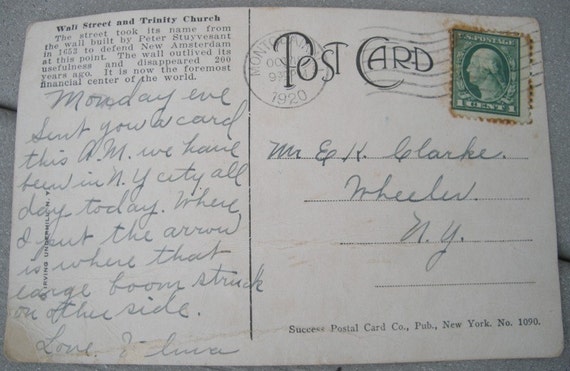 Wall Street and Trinity Church
The street took its name from
the wall built by Peter Stuyvesant
in 1652 to defend New Amsterdam
at this point. The wall outlived its
usefulness and disappeared 200
years ago. It is now the foremost
financial center of the world.
Monday eve
Sent you a card
this A.M. we have
been in N.Y city all
day today. Where
I put the arrow
is where that
large boom struck
on other side.
Love
IRVING UNDERHILL, N.Y.
POST CARD
1920
U.S. POSTAGE
1 CENT 1
Mr E. K. Clarke.
Wheeler
N.Y.
Success Postal Card Co., Pub., New York. No. 1090.